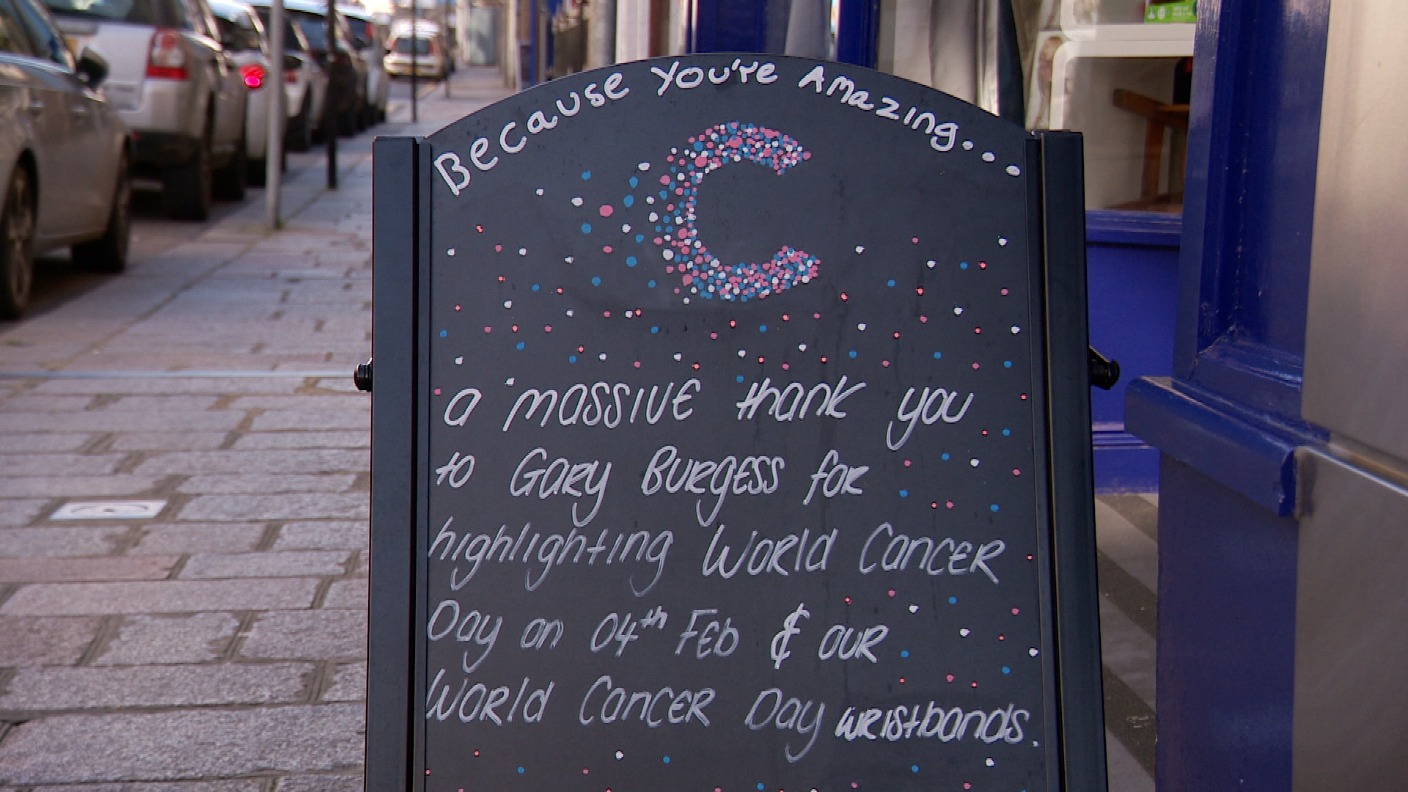 Because You're Amazing...
C
a massive thank you
to Gary Burgess for
highlighting World Cancer
Day on 04th Feb & our
World Cancer Day wristbands.